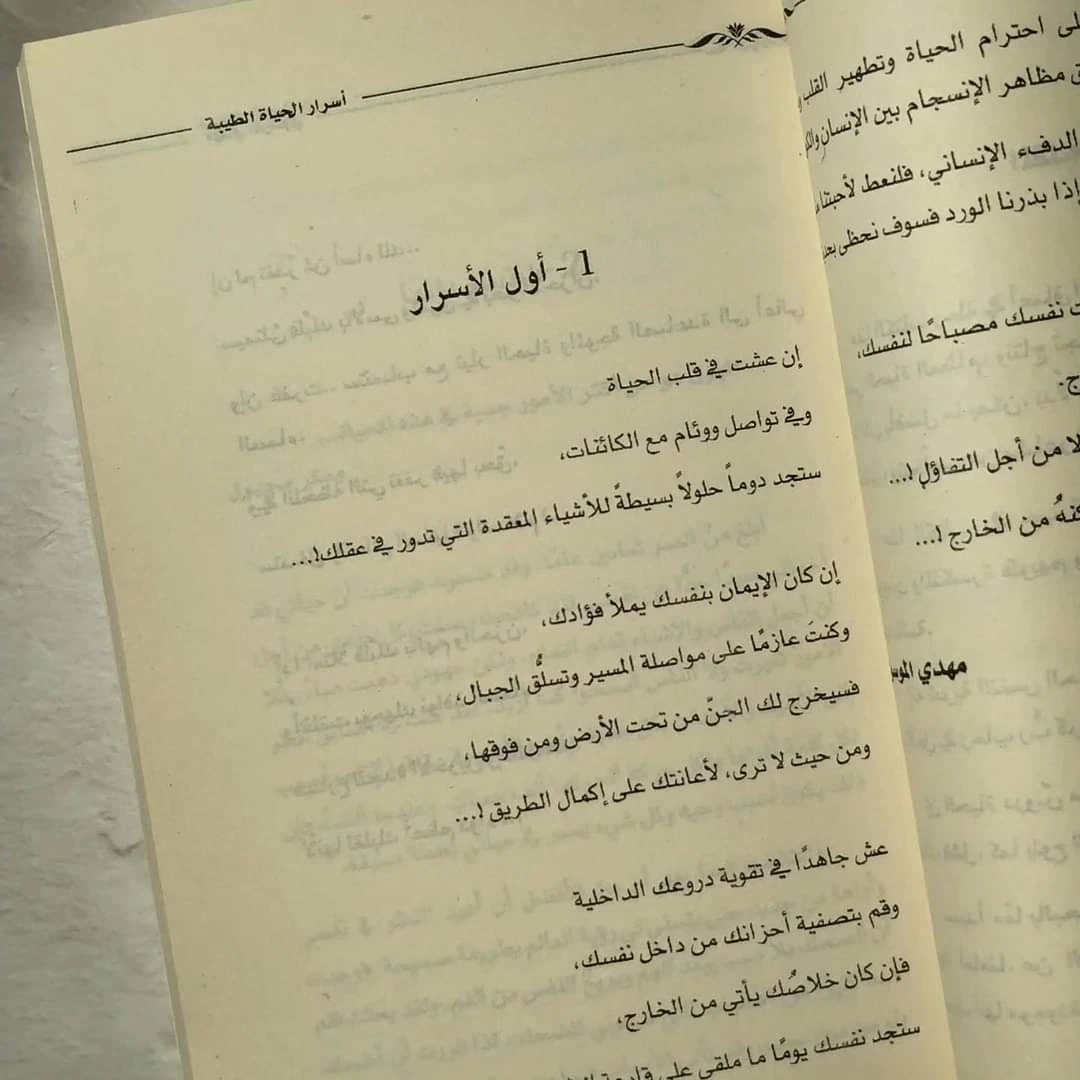 لى احترام الحياة وتطهير القلب
ق مظاهر الإنسجام بين الإنسان
الدفء الإنساني، فلنعط لأحبتنا
إذا بذرنا الورد فسوف نحظى
ت نفسك مصباحًا لنفسك،
ج.
لا من أجل التفاؤل !...
من الخارج !...
مهدي الموس
أسرار الحياة الطيبة
1 - أول الأسرار
إن عشت في قلب الحياة
وفي تواصل ووئام مع الكائنات،
ستجد دوماً حلولاً بسيطةً للأشياء المعقدة التي تدور في عقلك!...
إن كان الإيمان بنفسك يملأ فؤادك،
وكنتَ عازمًا على مواصلة المسير وتسلُّق الجبال،
فسيخرج لك الجنّ من تحت الأرض ومن فوقها،
ومن حيث لا ترى، لأعانتك على إكمال الطريق !...
عش جاهدًا في تقوية دروعك الداخلية
وقم بتصفية أحزانك من داخل نفسك،
فإن كان خلاصُك يأتي من الخارج،
ستجد نفسك يومًا ما ملقى على